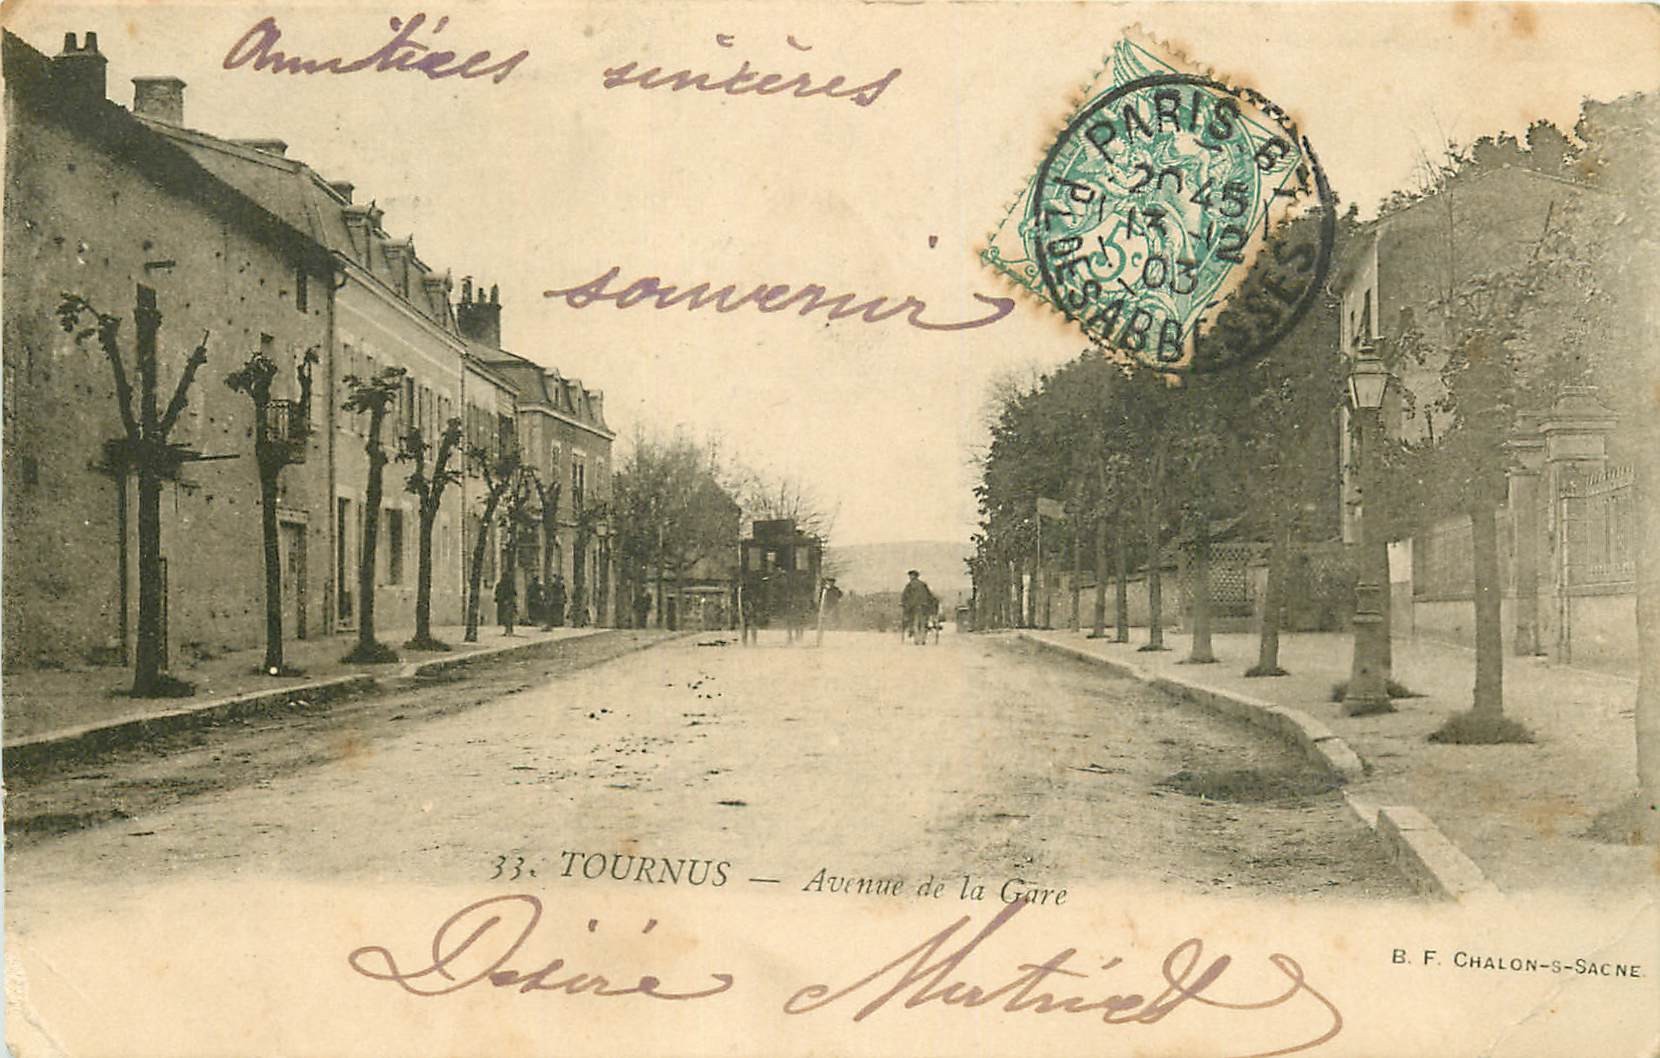 Amitiées sincères
souvenir
PARIS 67
20 45
13 12
03
PL. DES ABBESSES
5c
33. TOURNUS — Avenue de la Gare
Désiré
B. F. CHALON-S-SAONE